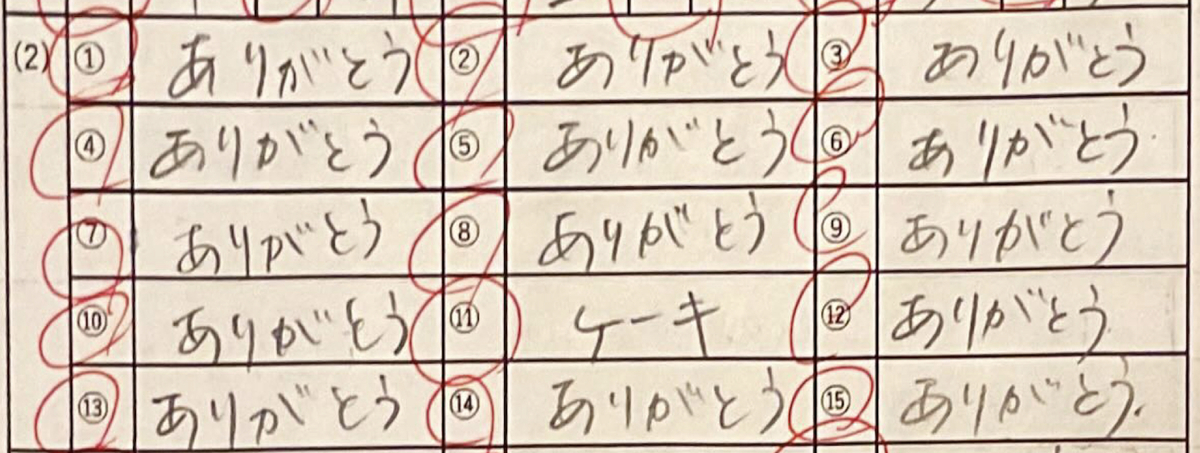 (2) ① ありがとう ② ありがとう ③ ありがとう
④ ありがとう ⑤ ありがとう ⑥ ありがとう
⑦ ありがとう ⑧ ありがとう ⑨ ありがとう
⑩ ありがとう ⑪ ケーキ ⑫ ありがとう
⑬ ありがとう ⑭ ありがとう ⑮ ありがとう.